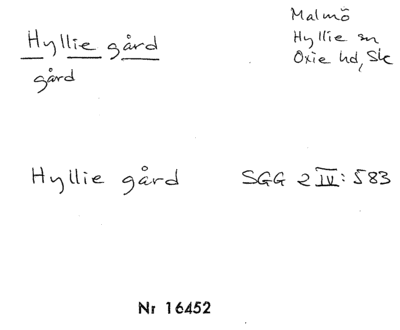 Hyllie gård
gård
Malmö
Hyllie sn
Oxie hd, Sk
Hyllie gård SGG 2 IV: 583
Nr 16452